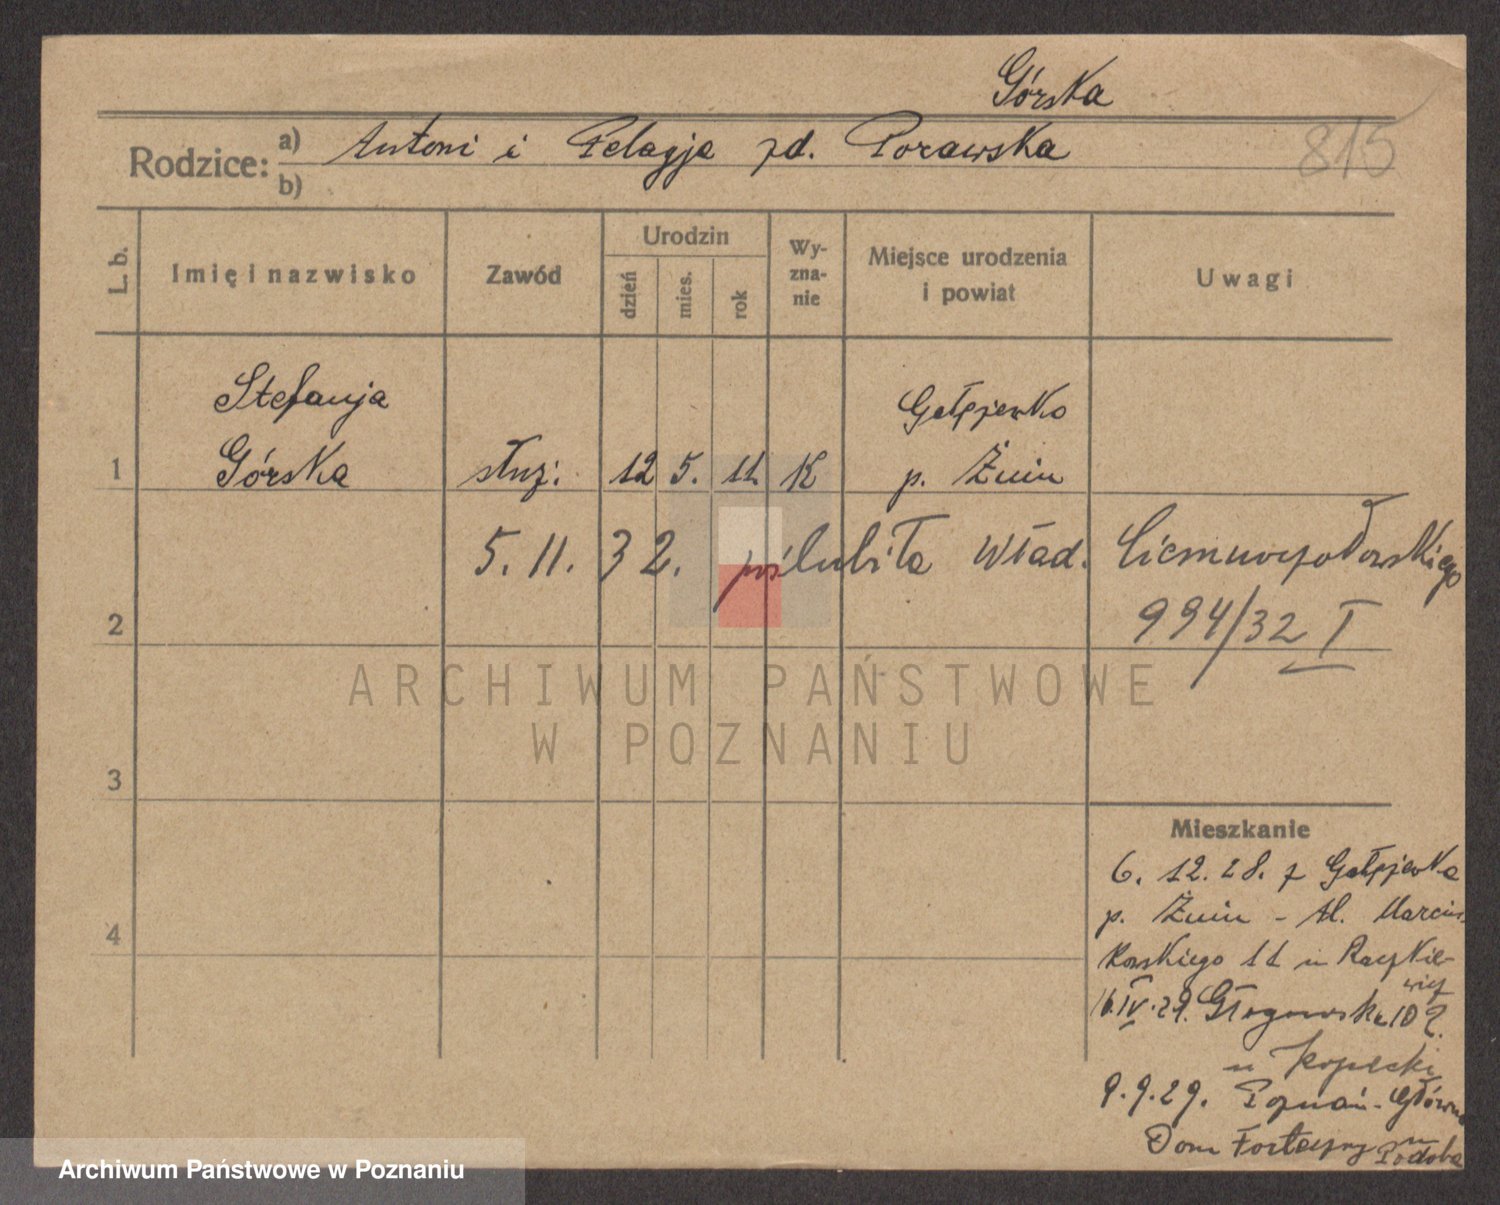 Górska
Rodzice: a) Antoni i Pelagja zd. Porawska 815
b)
L. b. Imię i nazwisko Zawód Urodzin dzień mies. rok Wyznanie Miejsce urodzenia i powiat Uwagi
Stefanja Gałęzewko
1 Górska służ. 12 5. 11. K p. Żnin
5. 11. 32. poślubiła Wład.
994/32 I
2
ARCHIWUM PAŃSTWOWE
W POZNANIU
3
Mieszkanie
6. 12. 28. z
p. Żnin - M. Marcin-
4
kowskiego 11 u Raczkie-
wicz
16.IV.29. Głogowska 102.
u
9.9.29. Poznań-Główna
Dom Forteczny u
Archiwum Państwowe w Poznaniu